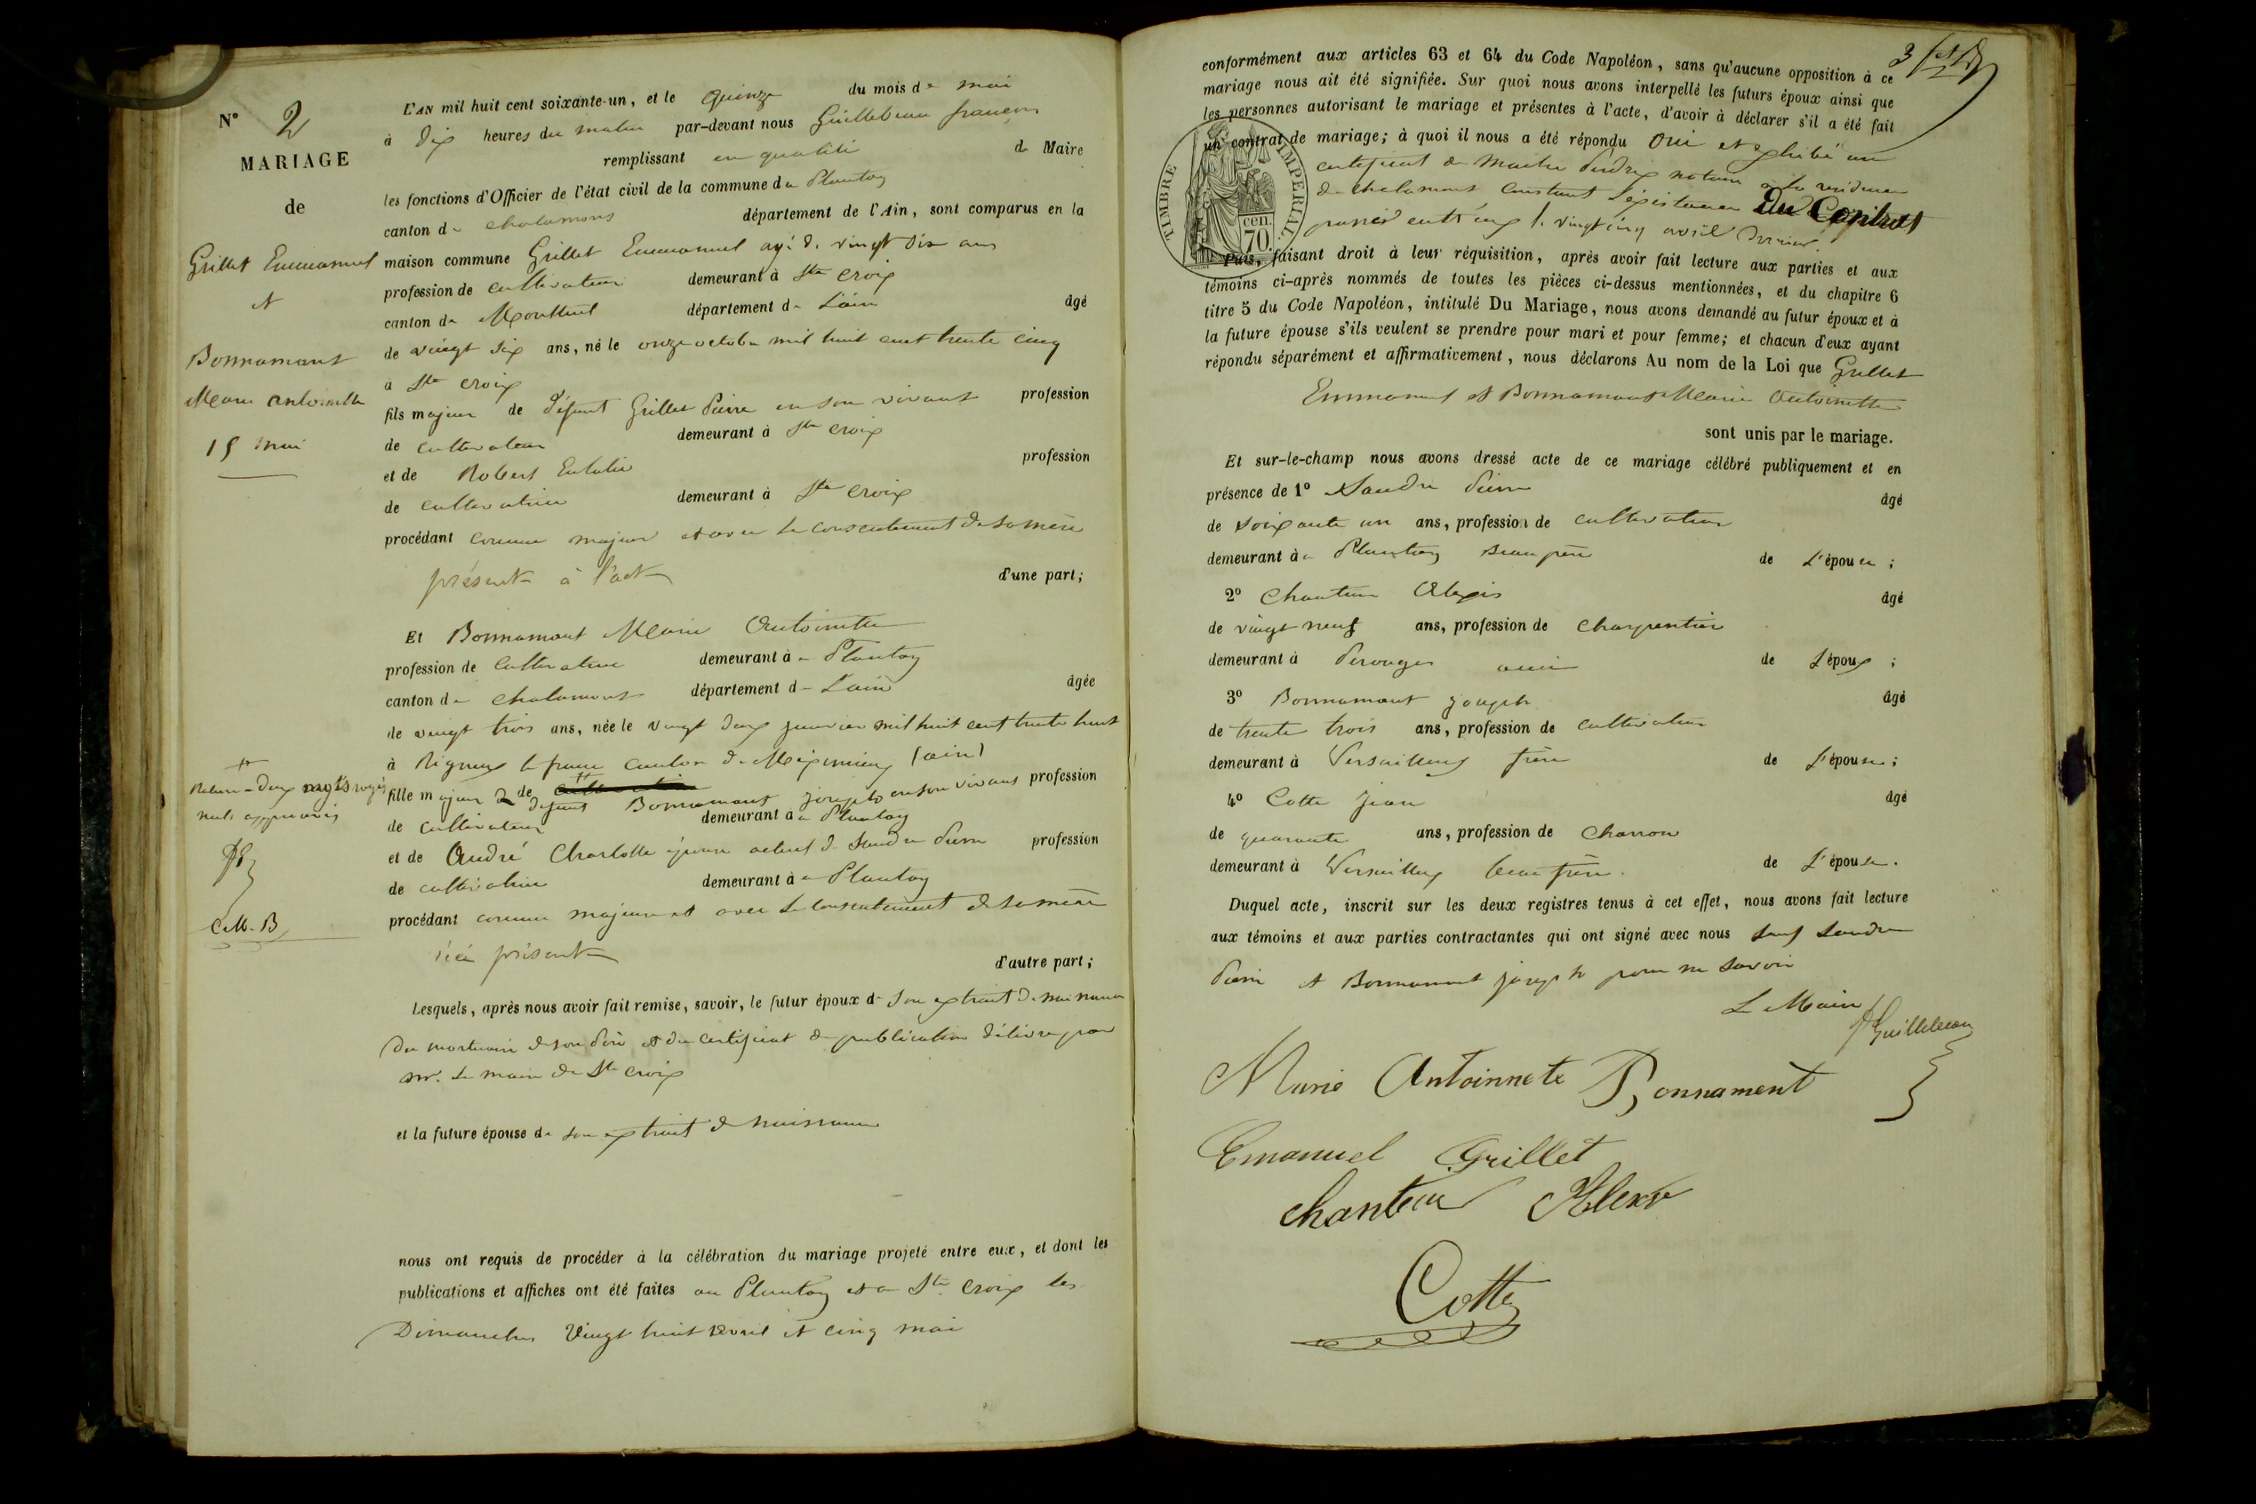 N° 2
MARIAGE
de
Grillet Emmanuel
et
Bonnamant
Marie antoinette
15 mai
L'AN mil huit cent soixante-un, et le quinze du mois de mai
à dix heures du matin par-devant nous Guillebeau françois
remplissant en qualité de Maire
les fonctions d'Officier de l'état civil de la commune du Plantay
canton de chalamont département de l'Ain, sont comparus en la
maison commune Grillet Emmanuel agé de vingt six ans
profession de cultivateur demeurant à Ste croix
canton de Montluel département de L'ain âgé
de vingt six ans, né le onze octobre mil huit cent trente cinq
à Ste croix
fils majeur de défunt Grillet Pierre en son vivant profession
de cultivateur demeurant à Ste croix
et de Robert Eulalie profession
de cultivatrice demeurant à Ste Croix
procédant comme majeur et avec le consentement de sa mère
présente à l'acte d'une part;
Et Bonnamant Marie Antoinette
profession de cultivatrice demeurant à Plantay
canton de chalamont département de L'ain âgée
de vingt trois ans, née le vingt deux janvier mil huit cent trente huit
à Rigneux le franc canton de Meximieux (ain)
fille majeure de défunt Bonnamant joseph en son vivant profession
de cultivateur demeurant à Plantay
et de André Charlotte épouse actuel de Sandre Pierre profession
de cultivatrice demeurant à Plantay
procédant comme majeure et avec le consentement de sa mère
ici présente d'autre part;
deux mots rayés
nuls approuvés
C.M.B
Lesquels, après nous avoir fait remise, savoir, le futur époux de son extrait de naissance
du mortuaire de son père et du certificat de publication délivré par
mr. le maire de Ste croix
et la future épouse de son extrait de naissance
nous ont requis de procéder à la célébration du mariage projeté entre eux, et dont les
publications et affiches ont été faites au Plantay et à Ste Croix les
Dimanches vingt huit avril et cinq mai
3
conformément aux articles 63 et 64 du Code Napoléon, sans qu'aucune opposition à ce
mariage nous ait été signifiée. Sur quoi nous avons interpellé les futurs époux ainsi que
les personnes autorisant le mariage et présentes à l'acte, d'avoir à déclarer s'il a été fait
un contrat de mariage; à quoi il nous a été répondu Oui et exhibé un
certificat de Maitre Perdrix notaire à la residence
de chalamont constant l'existence Du Contrat
passé entr'eux le vingt cinq avril dernier.
TIMBRE IMPERIAL
70 cen.
Puis, faisant droit à leur réquisition, après avoir fait lecture aux parties et aux
témoins ci-après nommés de toutes les pièces ci-dessus mentionnées, et du chapitre 6
titre 5 du Code Napoléon, intitulé Du Mariage, nous avons demandé au futur époux et à
la future épouse s'ils veulent se prendre pour mari et pour femme; et chacun d'eux ayant
répondu séparément et affirmativement, nous déclarons Au nom de la Loi que Grillet
Emmanuel et Bonnamant Marie Antoinette
sont unis par le mariage.
Et sur-le-champ nous avons dressé acte de ce mariage célébré publiquement et en
présence de 1° Sandre Pierre âgé
de soixante un ans, profession de cultivateur
demeurant à Plantay Beau père de L'épouse;
2° Chanteur Alexis âgé
de vingt neuf ans, profession de charpentier
demeurant à Perouges ami de L'époux;
3° Bonnamant joseph âgé
de trente trois ans, profession de cultivateur
demeurant à Versailleux frère de L'épouse;
4° Cotte Jean âgé
de quarante ans, profession de charron
demeurant à Versailleux beau frère de L'épouse.
Duquel acte, inscrit sur les deux registres tenus à cet effet, nous avons fait lecture
aux témoins et aux parties contractantes qui ont signé avec nous sauf Sandre
Pierre et Bonnamant joseph pour ne savoir
Le Maire
Guillebeau
Marie Antoinnete Bonnament
Emanuel Grillet
chanteur Alexis
Cotte